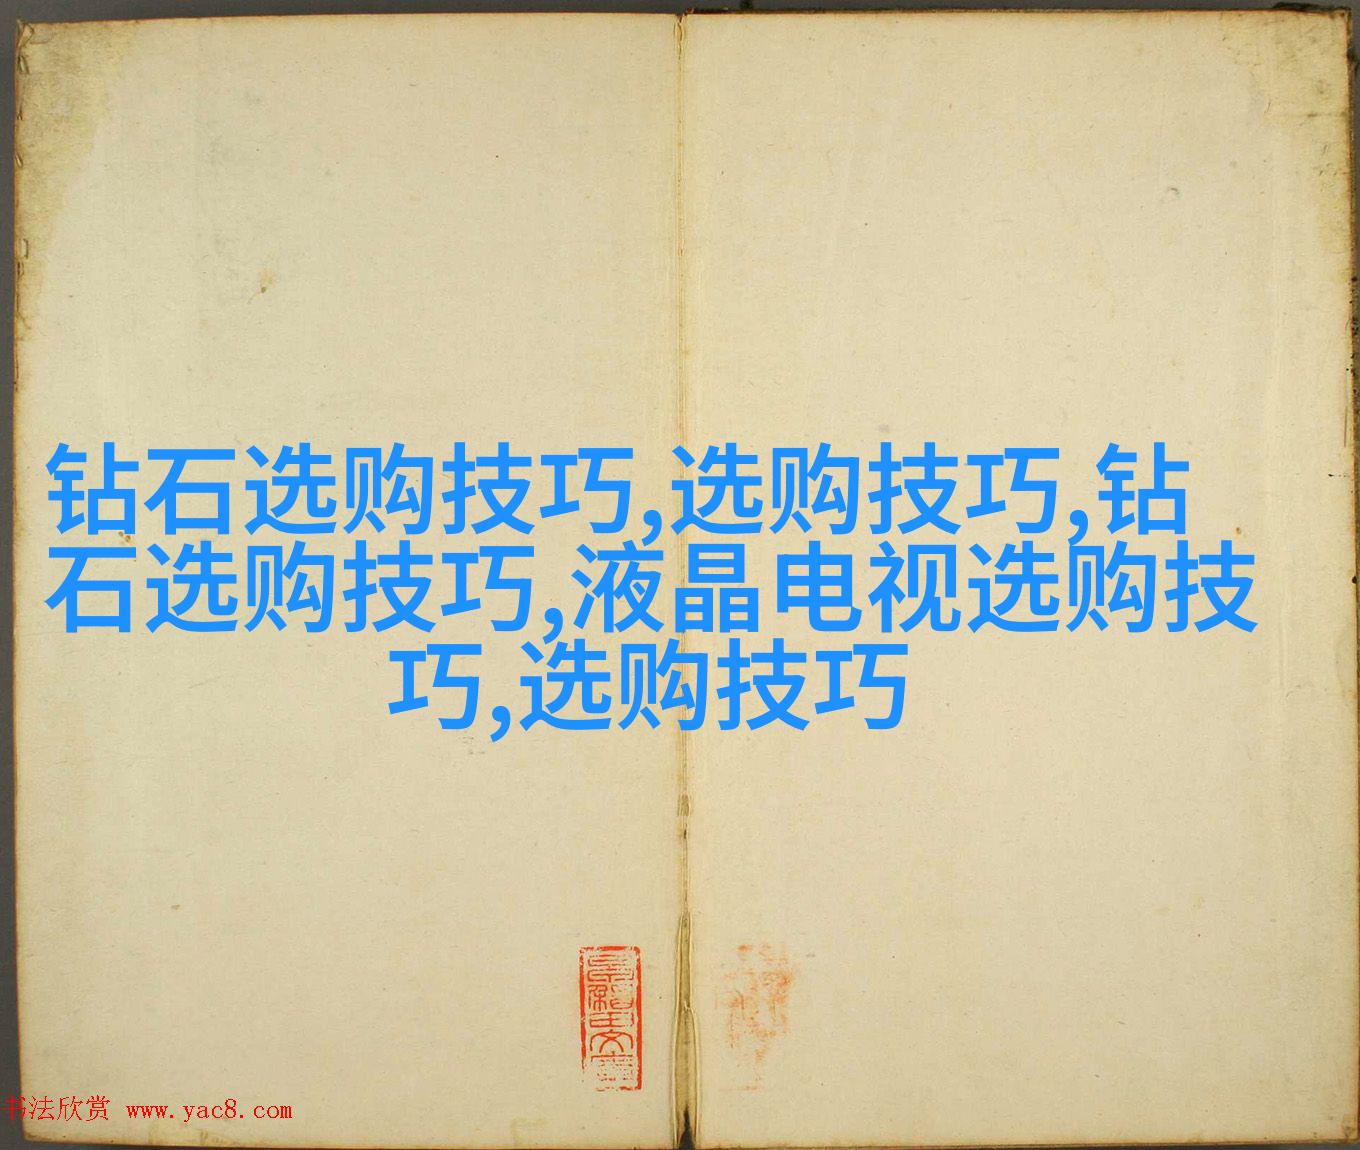 钻石选购技巧,选购技巧,钻
石选购技巧,液晶电视选购技
巧,选购技巧
书法欣赏 www.yac8.com